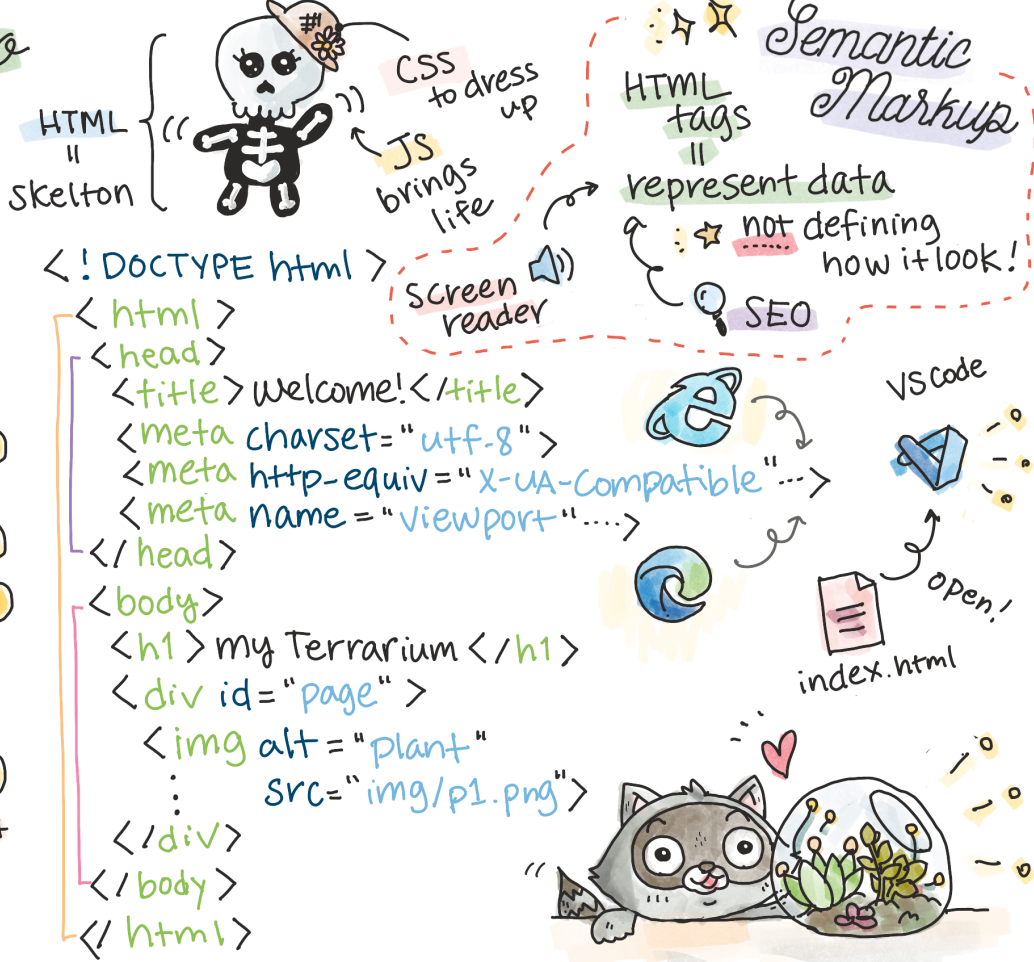 HTML
=
Skelton
CSS
to dress
up
JS
brings
life
Semantic
Markup
HTML
tags
=
represent data
not defining
how it look!
screen
reader
SEO
<!DOCTYPE html>
<html>
<head>
<title>Welcome!</title>
<meta charset="utf-8">
<meta http-equiv="X-UA-Compatible"...>
<meta name="viewport"....>
</head>
<body>
<h1>my Terrarium</h1>
<div id="page">
<img alt="plant"
src="img/p1.png">
</div>
</body>
</html>
VSCode
open!
index.html